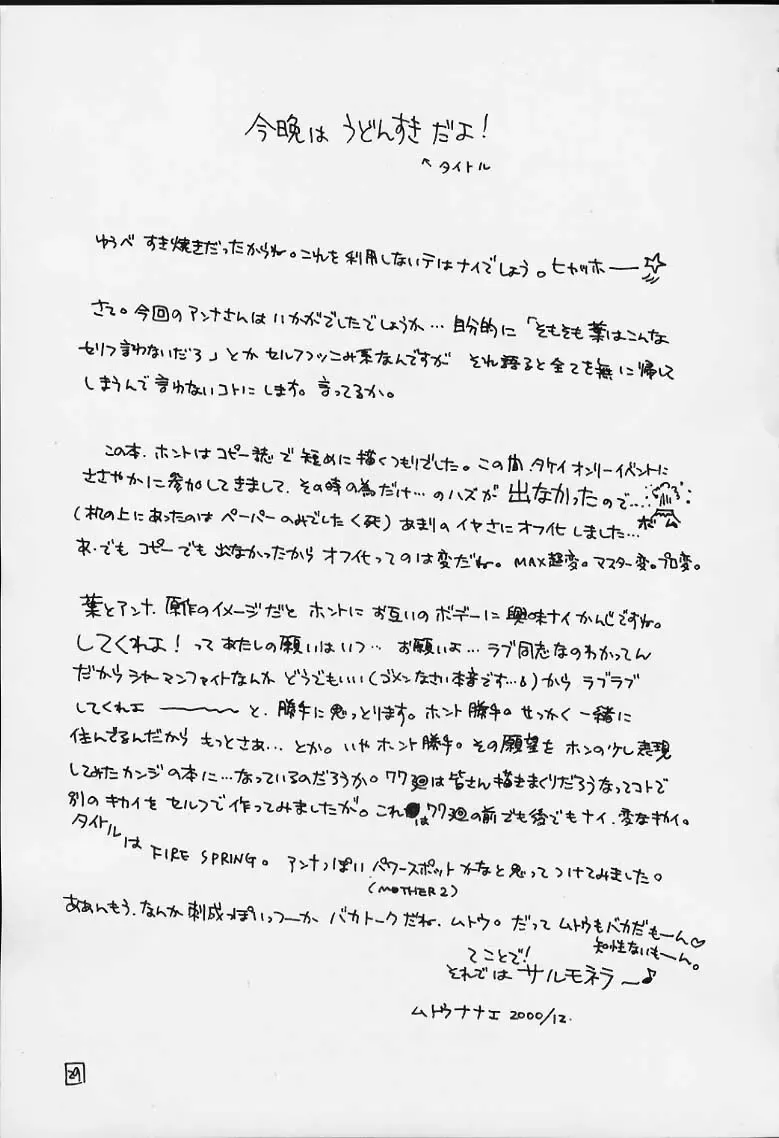 今晩は うどんすき だよ!
↖タイトル
ゆうべ すき焼きだったからね。これを利用しないテはナイでしょう。ヒャッホー――☆
さて。今回のアンナさんはいかがでしたでしょうか… 自分的に「そもそも葉はこんな
セリフ言わないだろ」とか セルフツッこみ系なんですが それ語ると全てを無に帰して
しまうんで言わないコトにします。言ってるか。
この本、ホントはコピー誌で短めに描くつもりでした。この間、タケイオンリーイベントに
ささやかに参加してきまして、その時の為だけ…のハズが 出なかったので…
ボム
(机の上にあったのは ペーパーのみでした<死) あまりのイヤさにオフ化しました…
あ、でも コピーでも 出なかったから オフ化ってのは変だね。MAX超変。マスター変。プロ変。
葉とアンナ、原作のイメージだと ホントに お互いのボデーに興味ナイかんじですね。
してくれよ! って あたしの願いはいつ… お願いよ… ラブ同志なのわかってん
だから シャーマンファイトなんか どうでもいい(ゴメンなさい本音です…) から ラブラブ
してくれェ ――――～ と、勝手に思っとります。ホント勝手。せっかく一緒に
住んでるんだから もっとさぁ… とか。いや ホント勝手。その願望を ホンの少し表現
してみたカンジの本に…なっているのだろうか。77廻は皆さん描きまくりだろうなってコトで
別のキカイを セルフで作ってみましたが。これは77廻の前でも後でもナイ、変なキカイ。
タイトルは FIRE SPRING。 アンナっぽい パワースポットかなと思ってつけてみました。
(MOTHER2)
ああんもう、なんか 刺成っぽいっつーか バカトークだね、ムトウ。だって ムトウもバカだもーん♡
知性ないもーん。
てことで!
それでは サルモネラ～♪
ムトウナナエ 2000/12.
29